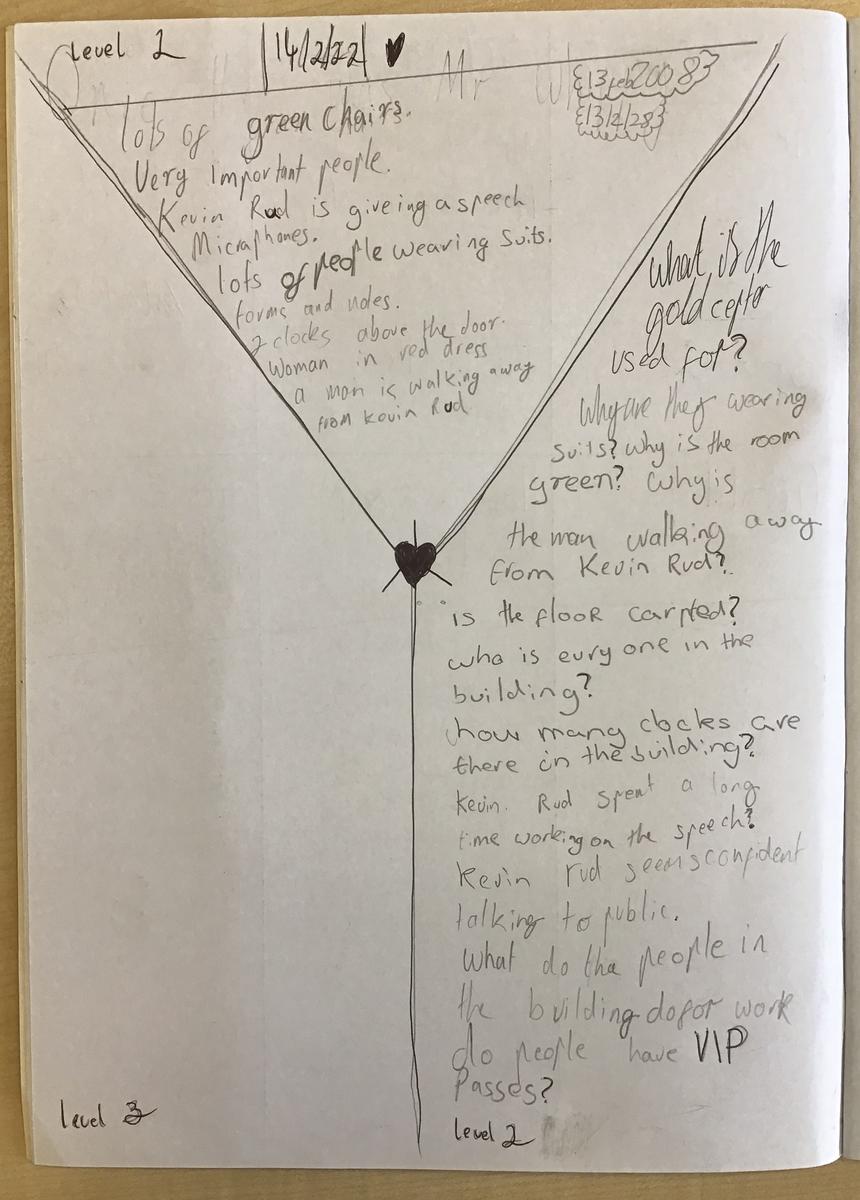 Level 1
14/2/22
{13 feb 2008}
{13/2/28}
lots of green chairs.
Very important people.
Kevin Rud is giveing a speech
Micraphones.
lots of people wearing suits.
forms and notes.
2 clocks above the door.
Woman in red dress
a man is walking away
from Kevin Rud
what is the
gold cepter
used for?
Why are they wearing
suits? why is the room
green? Why is
the man walking away
from Kevin Rud?
is the floor carpted?
who is eury one in the
building?
how many clocks are
there in the building?
Kevin. Rud spent a long
time working on the speech?
Kevin rud seems confident
talking to public.
What do the people in
the building do for work
do people have VIP
Passes?
Level 3
Level 2